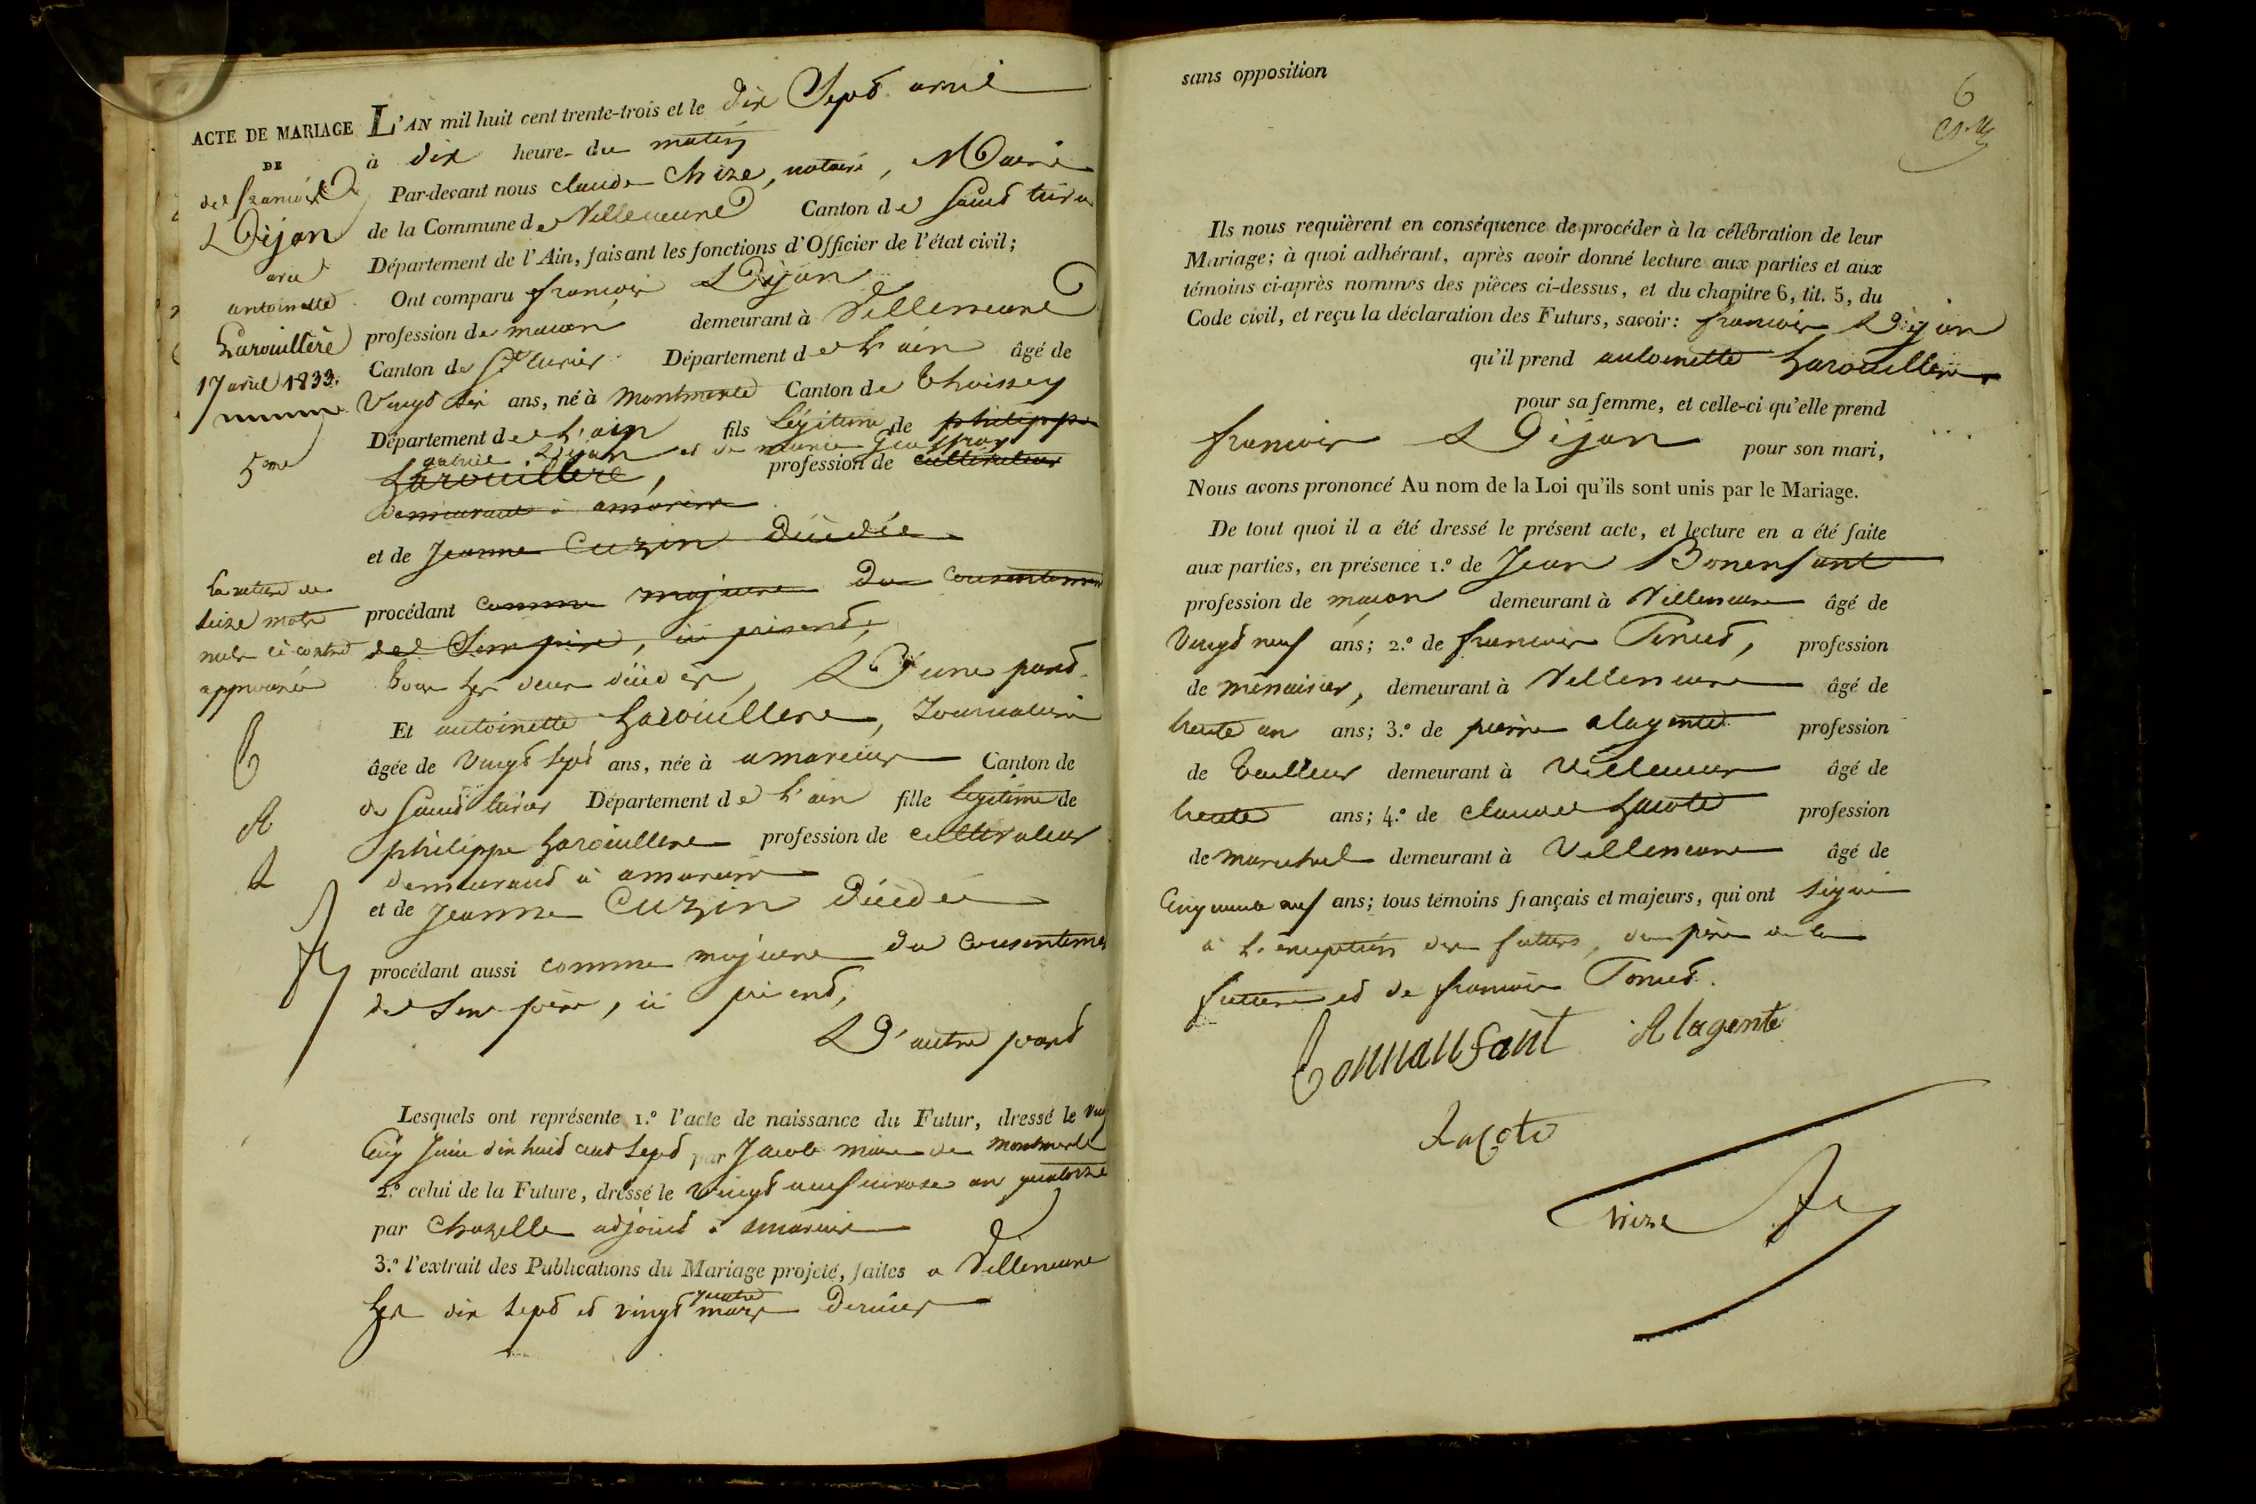 ACTE DE MARIAGE
DE
de françois
Dijon
avec
antoinette
Larouillère
17 avril 1833.
5me
La rature de
seize mots
nuls ci contre
approuvée
B
A
L
L'AN mil huit cent trente-trois et le dix Sept avril
à dix heure du matin
Par-devant nous claude Chize, notaire, Maire
de la Commune de Villeneuve Canton de Saint trivier
Département de l'Ain, faisant les fonctions d'Officier de l'état civil;
Ont comparu françois Dijon
profession de macon demeurant à Villeneuve
Canton de St trivier Département de L'ain âgé de
Vingt six ans, né à Montmerle Canton de Thoissey
Département de L'ain fils Légitime de philippe
Dijon et de marie
Larouillere, profession de cultivateur
demeurant à amareins
et de Jeanne Cuzin décédée
procédant comme majeure du consentement
de Son père, ici présent,
tous Les deux décédés, D'une part.
Et antoinette Larouillere, Journalière
âgée de Vingt Sept ans, née à amareins Canton de
de Saint trivier Département de L'ain fille Légitime de
philippe Larouillere profession de cultivateur
demeurant à amareins
et de Jeanne Cuzin décédée
procédant aussi comme majeure du consentement
de Son père, ici présent,
D'autre part
Lesquels ont représenté 1.º l'acte de naissance du Futur, dressé le vingt
Cinq Juin dix huit cent Sept par Jacob maire de Montmerle
2.º celui de la Future, dressé le vingt neuf nivose an quatorze
par Chazelle adjoint à amareins
3.º l'extrait des Publications du Mariage projeté, faites a Villeneuve
Les dix Sept et vingt quatre mars dernier
sans opposition
6
Ils nous requièrent en conséquence de procéder à la célébration de leur
Mariage; à quoi adhérant, après avoir donné lecture aux parties et aux
témoins ci-après nommés des pièces ci-dessus, et du chapitre 6, tit. 5, du
Code civil, et reçu la déclaration des Futurs, savoir: françois Dijon
qu'il prend antoinette Larouillere
pour sa femme, et celle-ci qu'elle prend
françois Dijon pour son mari,
Nous avons prononcé Au nom de la Loi qu'ils sont unis par le Mariage.
De tout quoi il a été dressé le présent acte, et lecture en a été faite
aux parties, en présence 1.º de Jean Bonenfant
profession de maçon demeurant à Villeneuve âgé de
Vingt neuf ans; 2.º de françois profession
de menuisier, demeurant à Villeneuve âgé de
trente un ans; 3.º de pierre alagente profession
de tailleur demeurant à Villeneuve âgé de
trente ans; 4.º de claude Lacote profession
de marechal demeurant à Villeneuve âgé de
Cinquante neuf ans; tous témoins français et majeurs, qui ont signé
à L'exception des futurs, du père de la
future et de françois
Bonnanfant Alagente
Lacote
Chize